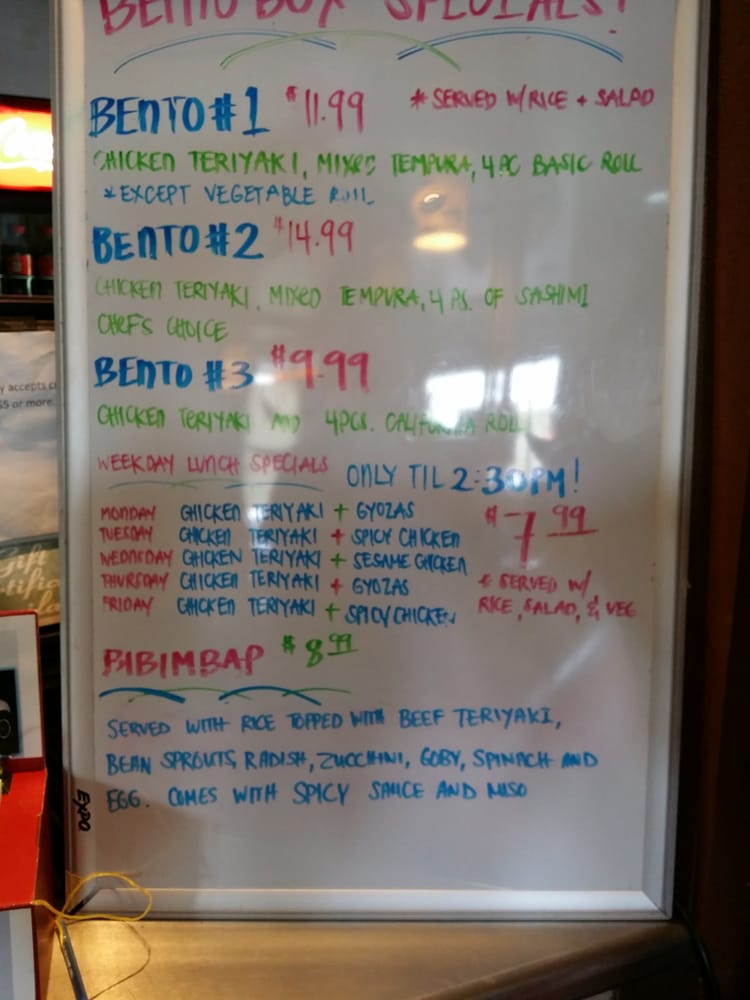 BENTO BOX SPECIALS!
BENTO #1 $11.99 * SERVED W/RICE + SALAD
CHICKEN TERIYAKI, MIXED TEMPURA, 4 PC BASIC ROLL
* EXCEPT VEGETABLE ROLL
BENTO #2 $14.99
CHICKEN TERIYAKI, MIXED TEMPURA, 4 PS. OF SASHIMI
CHEF'S CHOICE
BENTO #3 $9.99
CHICKEN TERIYAKI AND 4PCS. CALIFORNIA ROLL
WEEKDAY LUNCH SPECIALS ONLY TIL 2:30PM!
MONDAY CHICKEN TERIYAKI + GYOZAS $7.99
TUESDAY CHICKEN TERIYAKI + SPICY CHICKEN
WEDNESDAY CHICKEN TERIYAKI + SESAME CHICKEN
THURSDAY CHICKEN TERIYAKI + GYOZAS * SERVED W/
FRIDAY CHICKEN TERIYAKI + SPICY CHICKEN RICE, SALAD, & VEG
BIBIMBAP $8.99
SERVED WITH RICE TOPPED WITH BEEF TERIYAKI,
BEAN SPROUTS, RADISH, ZUCCHINI, GOBY, SPINACH AND
EGG. COMES WITH SPICY SAUCE AND MISO
EXPO
y accepts c
$5 or more.
Gift